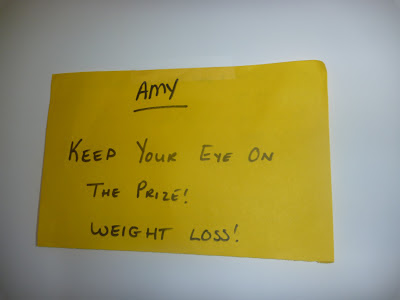 AMY
KEEP YOUR EYE ON
THE PRIZE!
WEIGHT LOSS!